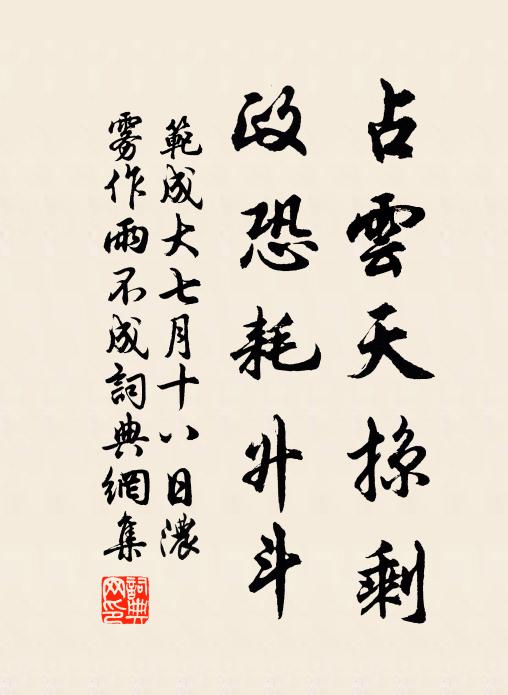 占雲天掠剩
政恐耗升斗
範成大七月十八日濃
霧作雨不成詞典網集
詞典網印